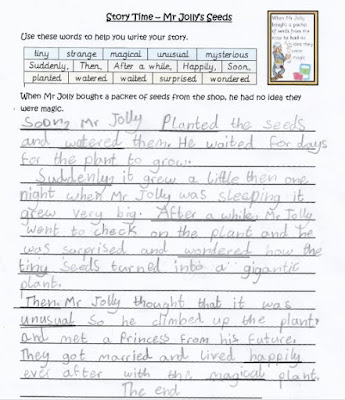 Story Time – Mr Jolly's Seeds
Use these words to help you write your story.
tiny strange magical unusual mysterious
Suddenly, Then, After a while, Happily, Soon,
planted watered waited surprised wondered
When Mr Jolly
bought a packet of
seeds from the
shop he had no
idea they
were
magic.
When Mr Jolly bought a packet of seeds from the shop, he had no idea they
were magic.
Soon, Mr Jolly Planted the seeds
and watered them. He waited for days
for the plant to grow.
Suddenly it grew a little then one
night when Mr Jolly was sleeping it
grew very big. After a while, Mr Jolly
went to check on the plant and he
was surprised and wondered how the
tiny seeds turned into a gigantic
plant.
Then, Mr Jolly thought that it was
unusual So he climbed up the plant
and met a Princess from his future.
They got married and lived happily
ever after with the magical plant.
The end